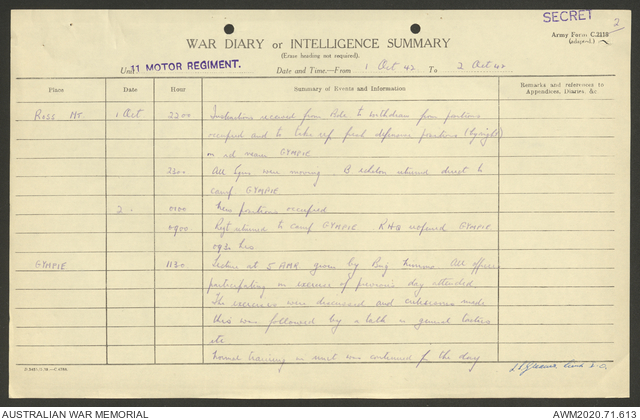 SECRET
2
Army Form C.2118
(adapted.)
WAR DIARY or INTELLIGENCE SUMMARY
(Erase heading not required).
Unit 11 MOTOR REGIMENT. Date and Time.—From 1 Oct 42 To 2 Oct 42
Place Date Hour Summary of Events and Information Remarks and references to Appendices, Diaries, &c
Ross Mt. 1 Oct 2200 Instructions received from Bde to withdraw from positions
occupied and to take up fresh defensive positions
on rd near GYMPIE
2300 All Sqns were moving. B echelon returned direct to
camp GYMPIE
2 0100 New positions occupied
0900 Regt returned to camp GYMPIE RHQ GYMPIE
0930 hrs
GYMPIE 1130 Lecture at 5 AMR given by Brig All officers
participating in exercise of previous day attended
The exercises were discussed and criticisms made
this was followed by a talk on general matters
etc
Normal training in unit was continued for the day
AUSTRALIAN WAR MEMORIAL AWM2020.71.613